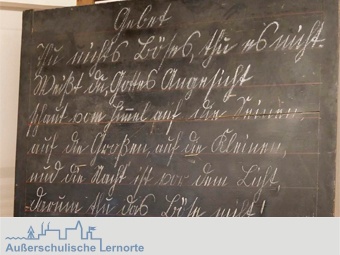 Gebet
Thu nichts Böses, thu es nicht.
Weißt du, Gottes Angesicht
schaut vom Himmel auf die Seinen,
auf die Großen, auf die Kleinen,
und die Nacht ist vor dem Licht,
darum thu das Böse nicht!
Außerschulische Lernorte